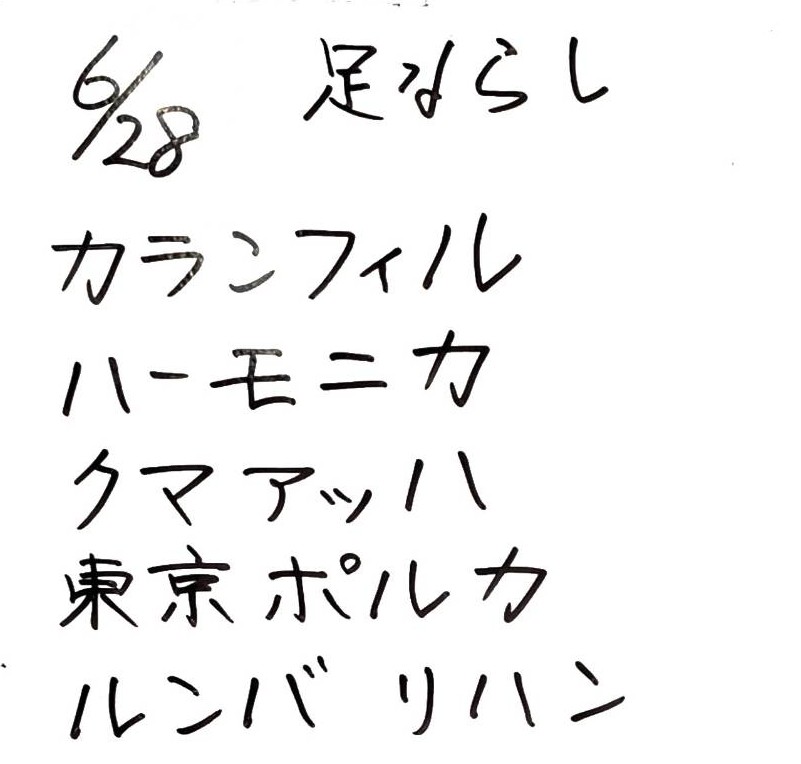 6/28 足ならし
カランフィル
ハーモニカ
クマァッハ
東京ポルカ
ルンバ リハン